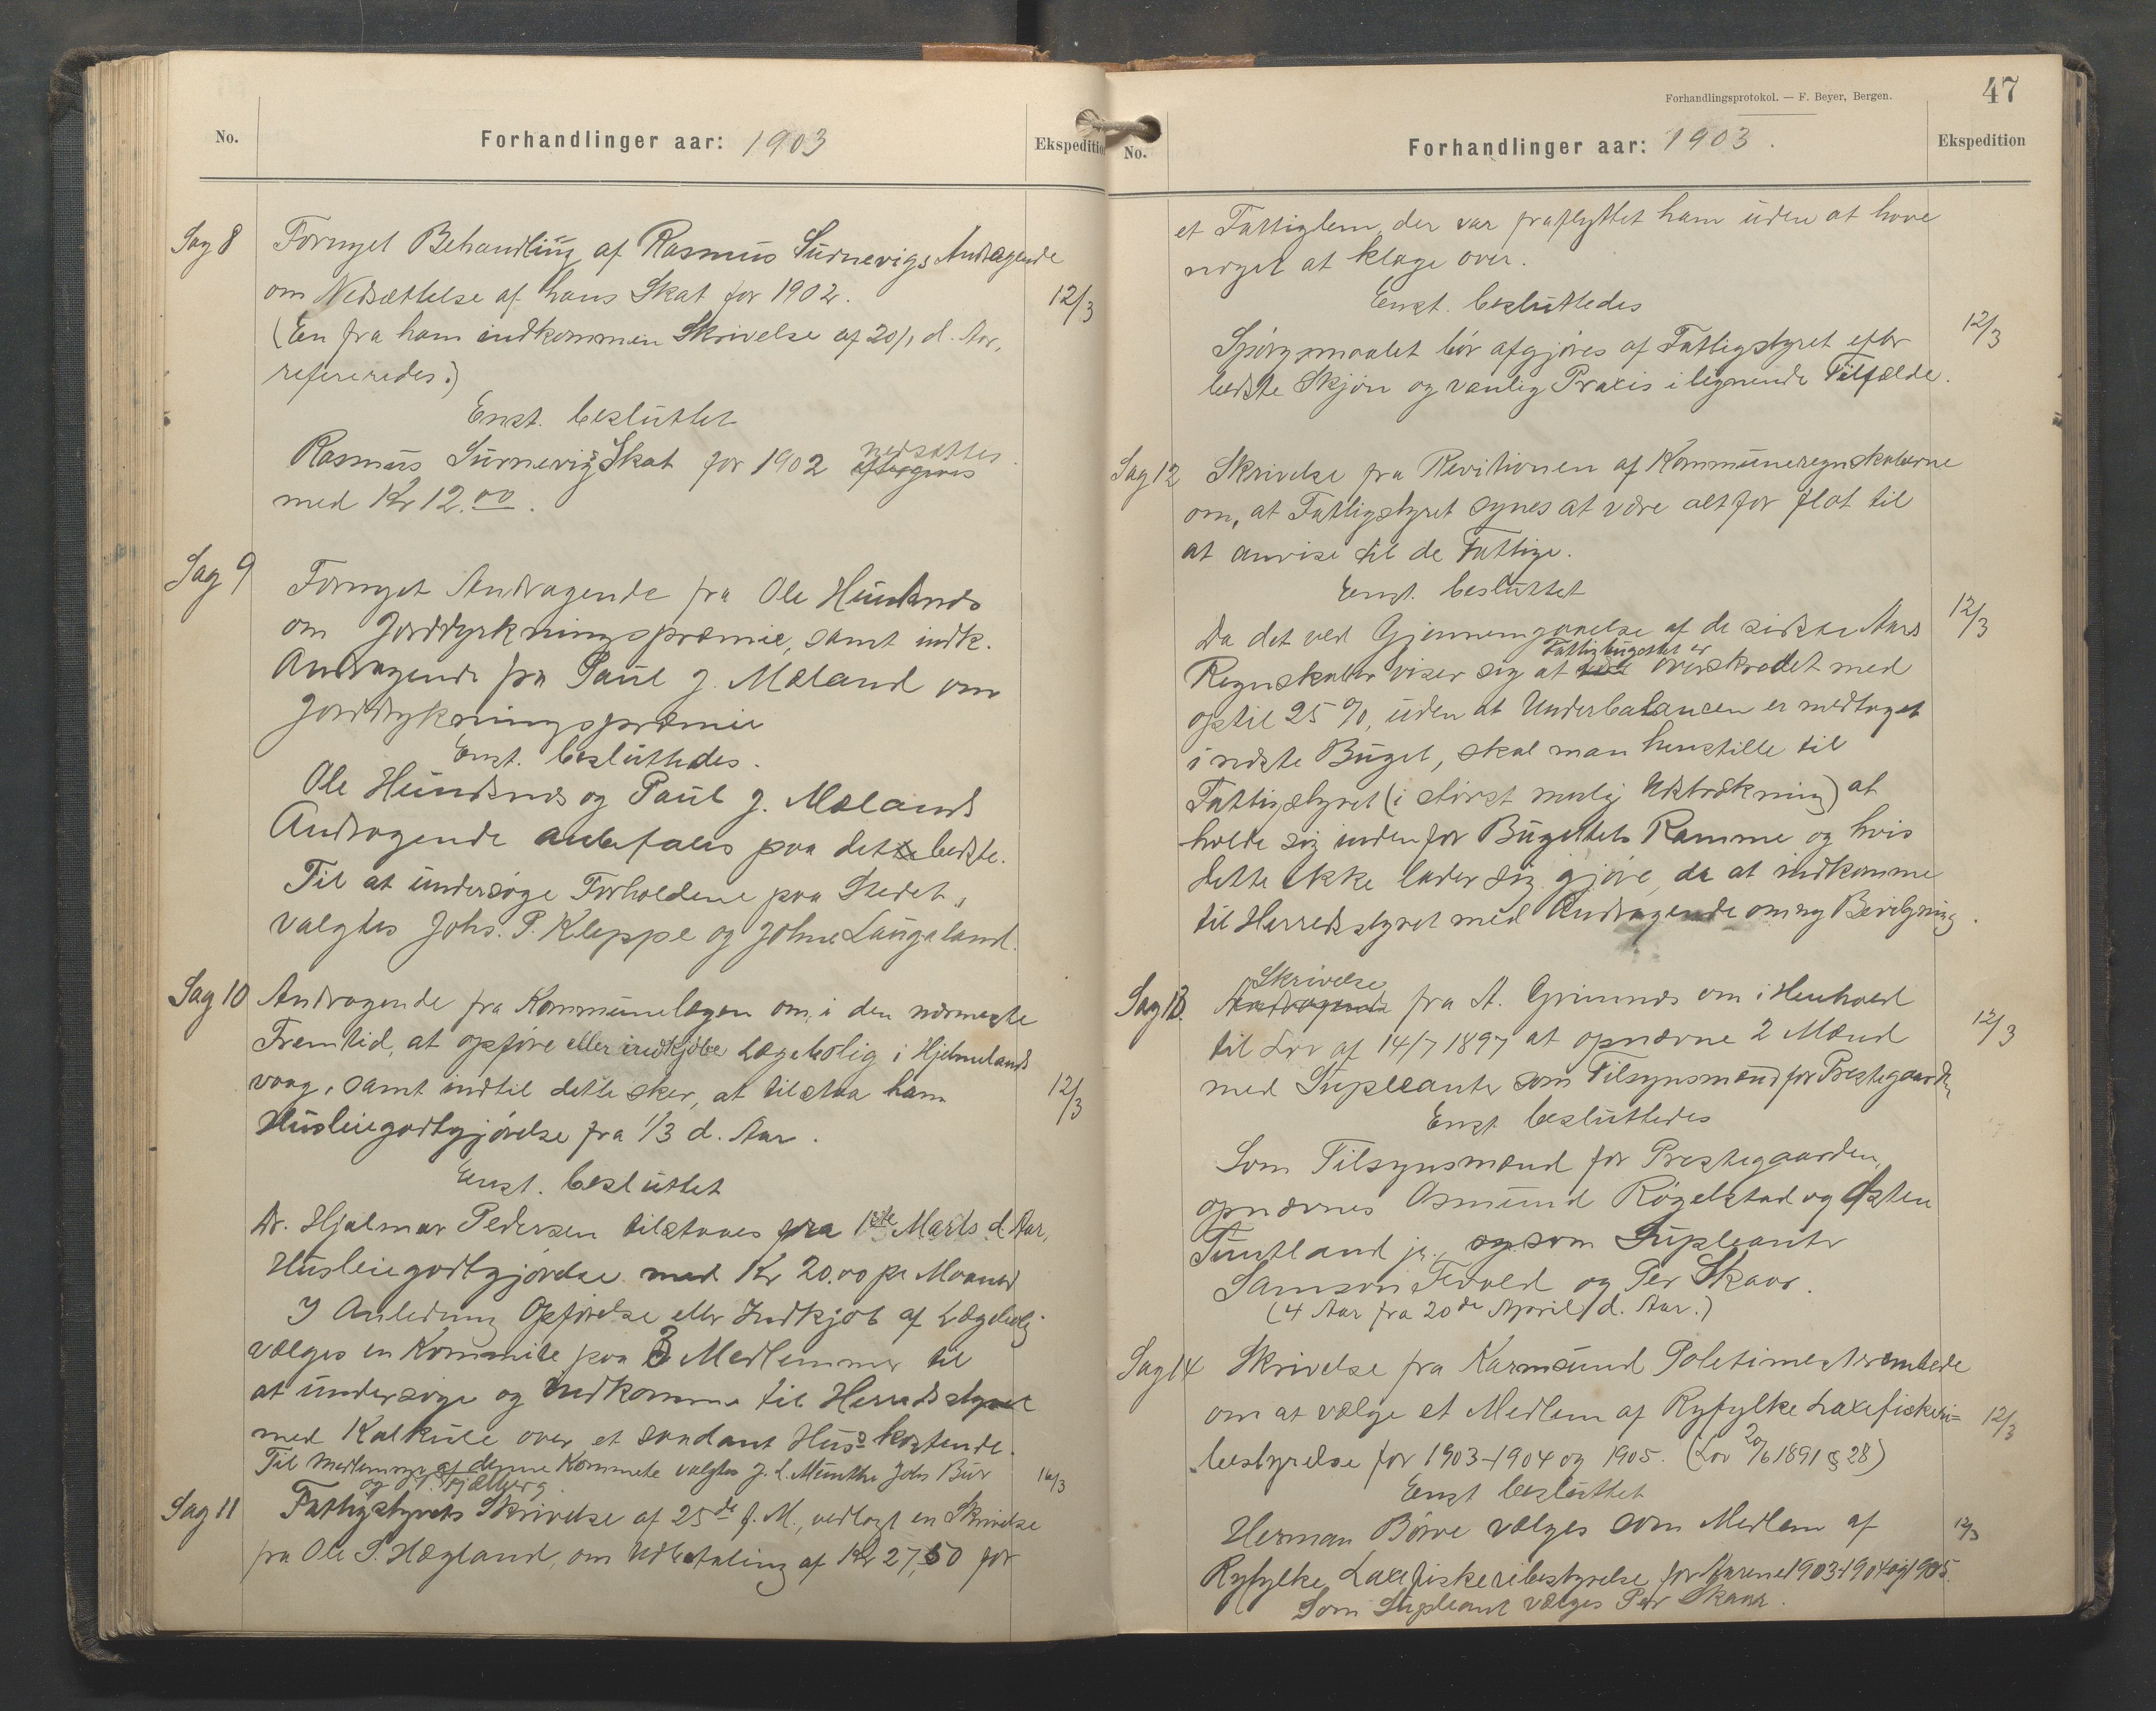 No.
Forhandlinger aar: 1903
Ekspedition
Sag 8
Fornyet Behandling af Rasmus Surnevigs Andragende
om Nedsættelse af hans Skat for 1902.
12/3
(En fra ham indkommen Skrivelse af 20/1 d. Aar,
refereredes.)
Enst. besluttet
Rasmus Surnevigs Skat for 1902 nedsættes
med Kr 12.00.
Sag 9
Fornyet Andragende fra Ole Hundsnes
om Jorddyrkningspræmie, samt indk.
Andragende fra Paul J. Mæland om
Jorddyrkningspræmie
Enst. besluttedes.
Ole Hundsnes og Paul J. Mælands
Andragende anbefales paa det bedste.
Til at undersøge Forholdene paa Stedet,
valgtes Johs. P. Kleppe og John Laugaland.
Sag 10
Andragende fra Kommunelægen om, i den nærmeste
Fremtid, at opføre eller indkjøbe Lægebolig i Hjelmelands
vaag, samt indtil dette sker, at tilstaa ham
12/3
Husleiegodtgjørelse fra 1/3 d. Aar.
Enst. besluttet
Dr. Hjalmar Pedersen tilstaaes fra 1ste Marts d. Aar,
Husleiegodtgjørelse med Kr 20.00 pr Maaned
I Anledning Opførelse eller Indkjøb af Lægebolig
vælges en Kommite paa 3 Medlemmer til
at undersøge og indkomme til Herredsstyret
med Kalkule over et saadant Hus's kostende.
Til Medlemmer af denne Kommite valgtes J. L. Munthe John Bur
16/3
Sag 11
Fattigstyrets Skrivelse af 25de f. M., vedlagt en Skrivelse
fra Ole P. Hægland, om Udbetaling af Kr 27,50 for
Forhandlingsprotokol. — F. Beyer, Bergen.
47
No.
Forhandlinger aar: 1903.
Ekspedition
et Fattiglem, der var fraflyttet ham uden at have
noget at klage over.
Enst. besluttedes
12/3
Spørgsmaalet bør afgjøres af Fattigstyret efter
bedste Skjøn og vanlig Praxis i lignende Tilfælde.
Sag 12
Skrivelse fra Revitionen af Kommuneregnskaberne
om, at Fattigstyret synes at være altfor flot til
at anvise til de Fattige.
Enst. besluttet
12/3
Da det ved Gjennemgaaelse af de sidste Aars
Fattigbugettet er
Regnskaber viser sig at overskredet med
optil 25 %, uden at Underbalancen er medtaget
i neste Buget, skal man henstille til
Fattigstyret (i størst mulig Udstrækning) at
holde sig inden for Bugettets Ramme og hvis
dette ikke lader sig gjøre, da at indkomme
til Herredsstyret med Andragende om ny Bevilgning.
Sag 13.
Skrivelse
Andragende fra A. Grimnes om i Henhold
til Lov af 14/7 1897 at opnævne 2 Mænd
12/3
med Supleanter som Tilsynsmænd for Prestegaarden
Enst besluttedes
Som Tilsynsmænd for Prestegaarden,
opnævnes Osmund Røgelstad og Østen
Tuntland jr., og som Supleanter
Samson Tveald og Per Skaar.
(4 Aar fra 20de April d. Aar.)
Sag 14
Skrivelse fra Karmsund Politimesterembede
om at vælge et Medlem af Ryfylke Laxefiskeri=
12/3
bestyrelse for 1903-1904 og 1905. (Lov 20/6 1891 § 28)
Enst besluttet
Herman Børve vælges som Medlem af
12/3
Ryfylke Laxefiskeribestyrelse for Aarene 1903-1904 og 1905.
Som Supleant vælges Per Skaar.